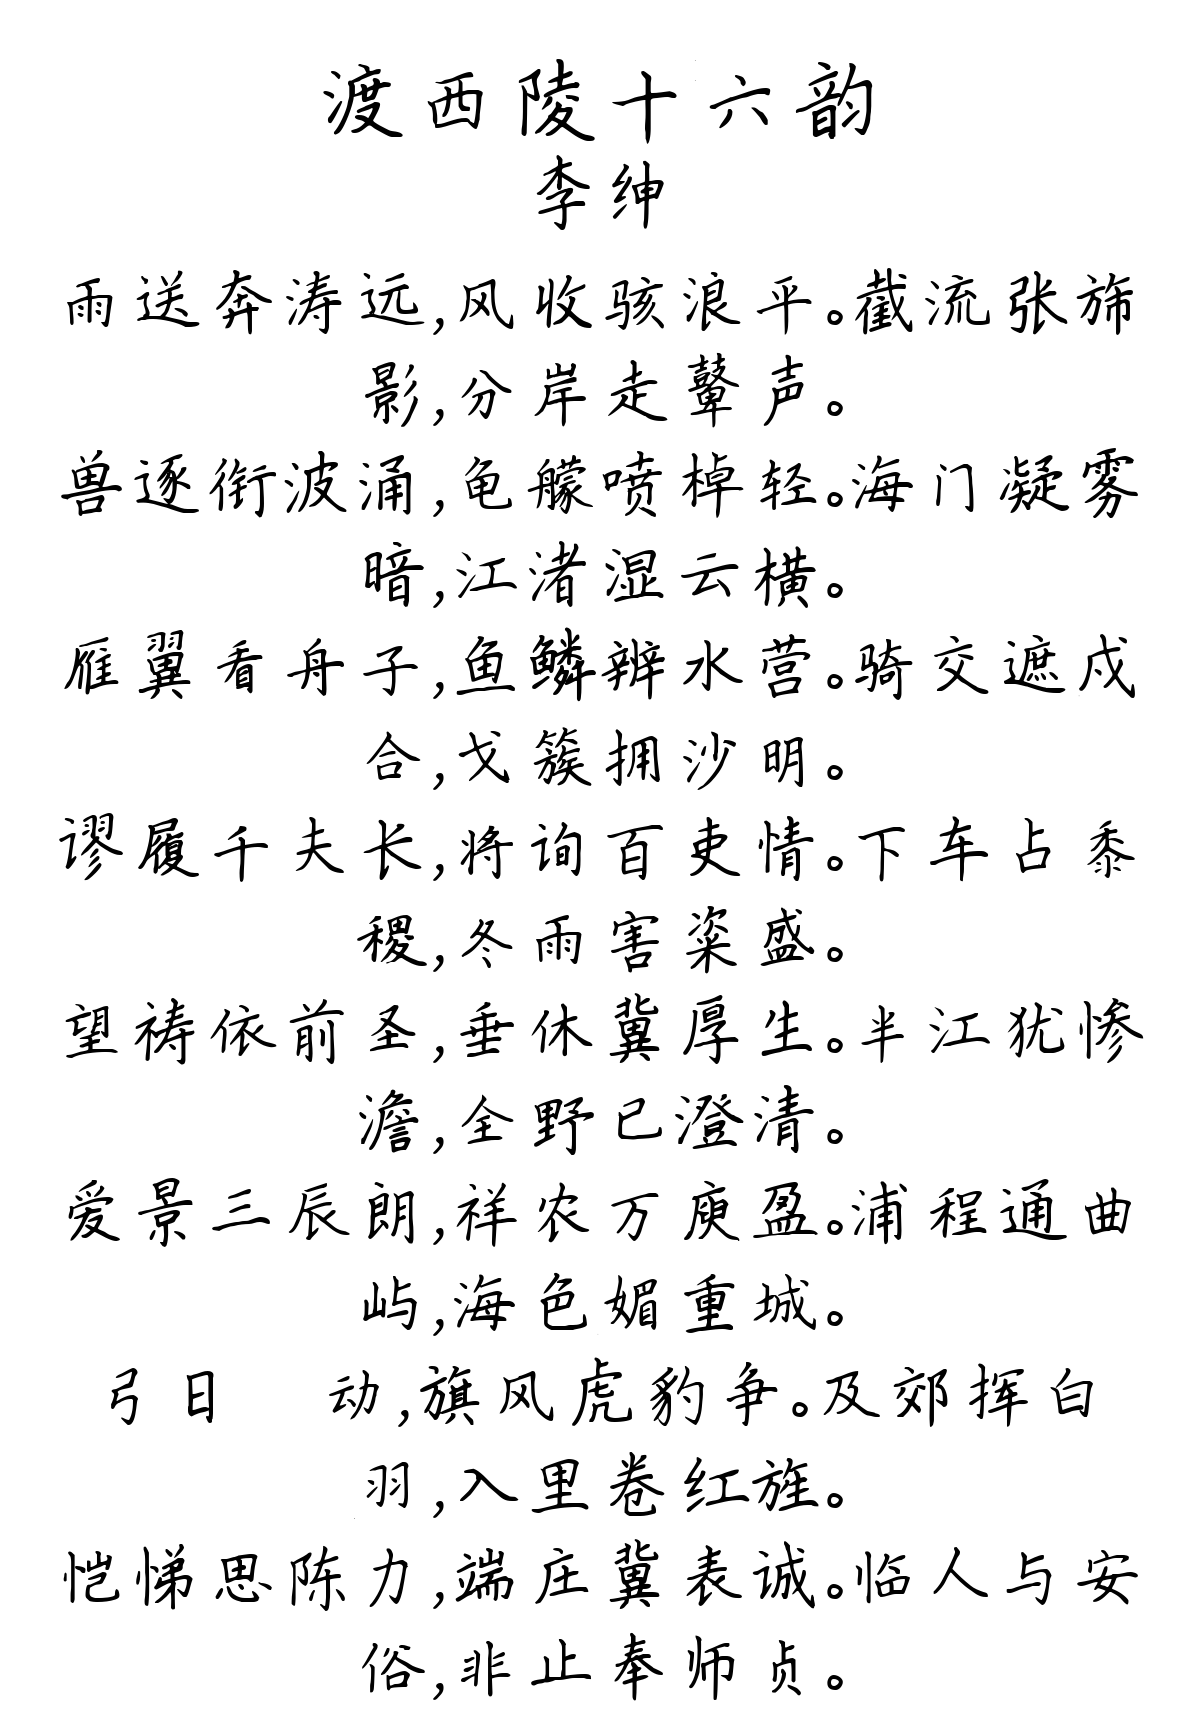 渡西陵十六韵
李绅
雨送奔涛远,风收骇浪平。截流张旆
影,分岸走鼙声。
兽逐衔波涌,龟艨喷棹轻。海门凝雾
暗,江渚湿云横。
雁翼看舟子,鱼鳞辨水营。骑交遮戍
合,戈簇拥沙明。
谬履千夫长,将询百吏情。下车占黍
稷,冬雨害粢盛。
望祷依前圣,垂休冀厚生。半江犹惨
澹,全野已澄清。
爱景三辰朗,祥农万庾盈。浦程通曲
屿,海色媚重城。
弓日 动,旗风虎豹争。及郊挥白
羽,入里卷红旌。
恺悌思陈力,端庄冀表诚。临人与安
俗,非止奉师贞。